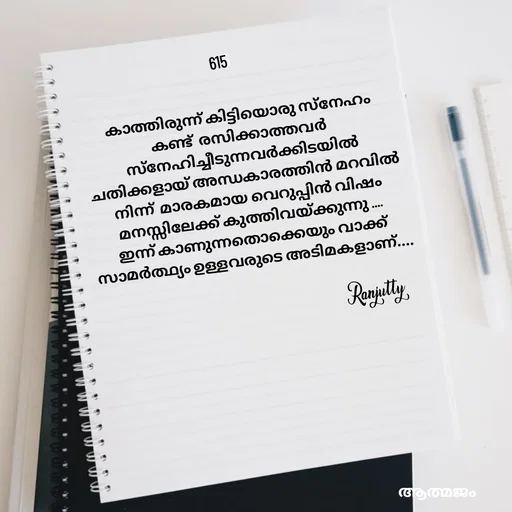 615
കാത്തിരുന്ന് കിട്ടിയൊരു സ്നേഹം
കണ്ട് രസിക്കാത്തവർ
സ്നേഹിച്ചീടുന്നവർക്കിടയിൽ
ചതിക്കളായ് അന്ധകാരത്തിൻ മറവിൽ
നിന്ന് മാരകമായ വെറുപ്പിൻ വിഷം
മനസ്സിലേക്ക് കുത്തിവയ്ക്കുന്നു ....
ഇന്ന് കാണുന്നതൊക്കെയും വാക്ക്
സാമർത്ഥ്യം ഉള്ളവരുടെ അടിമകളാണ്....
Ranjutty
ആത്മജം